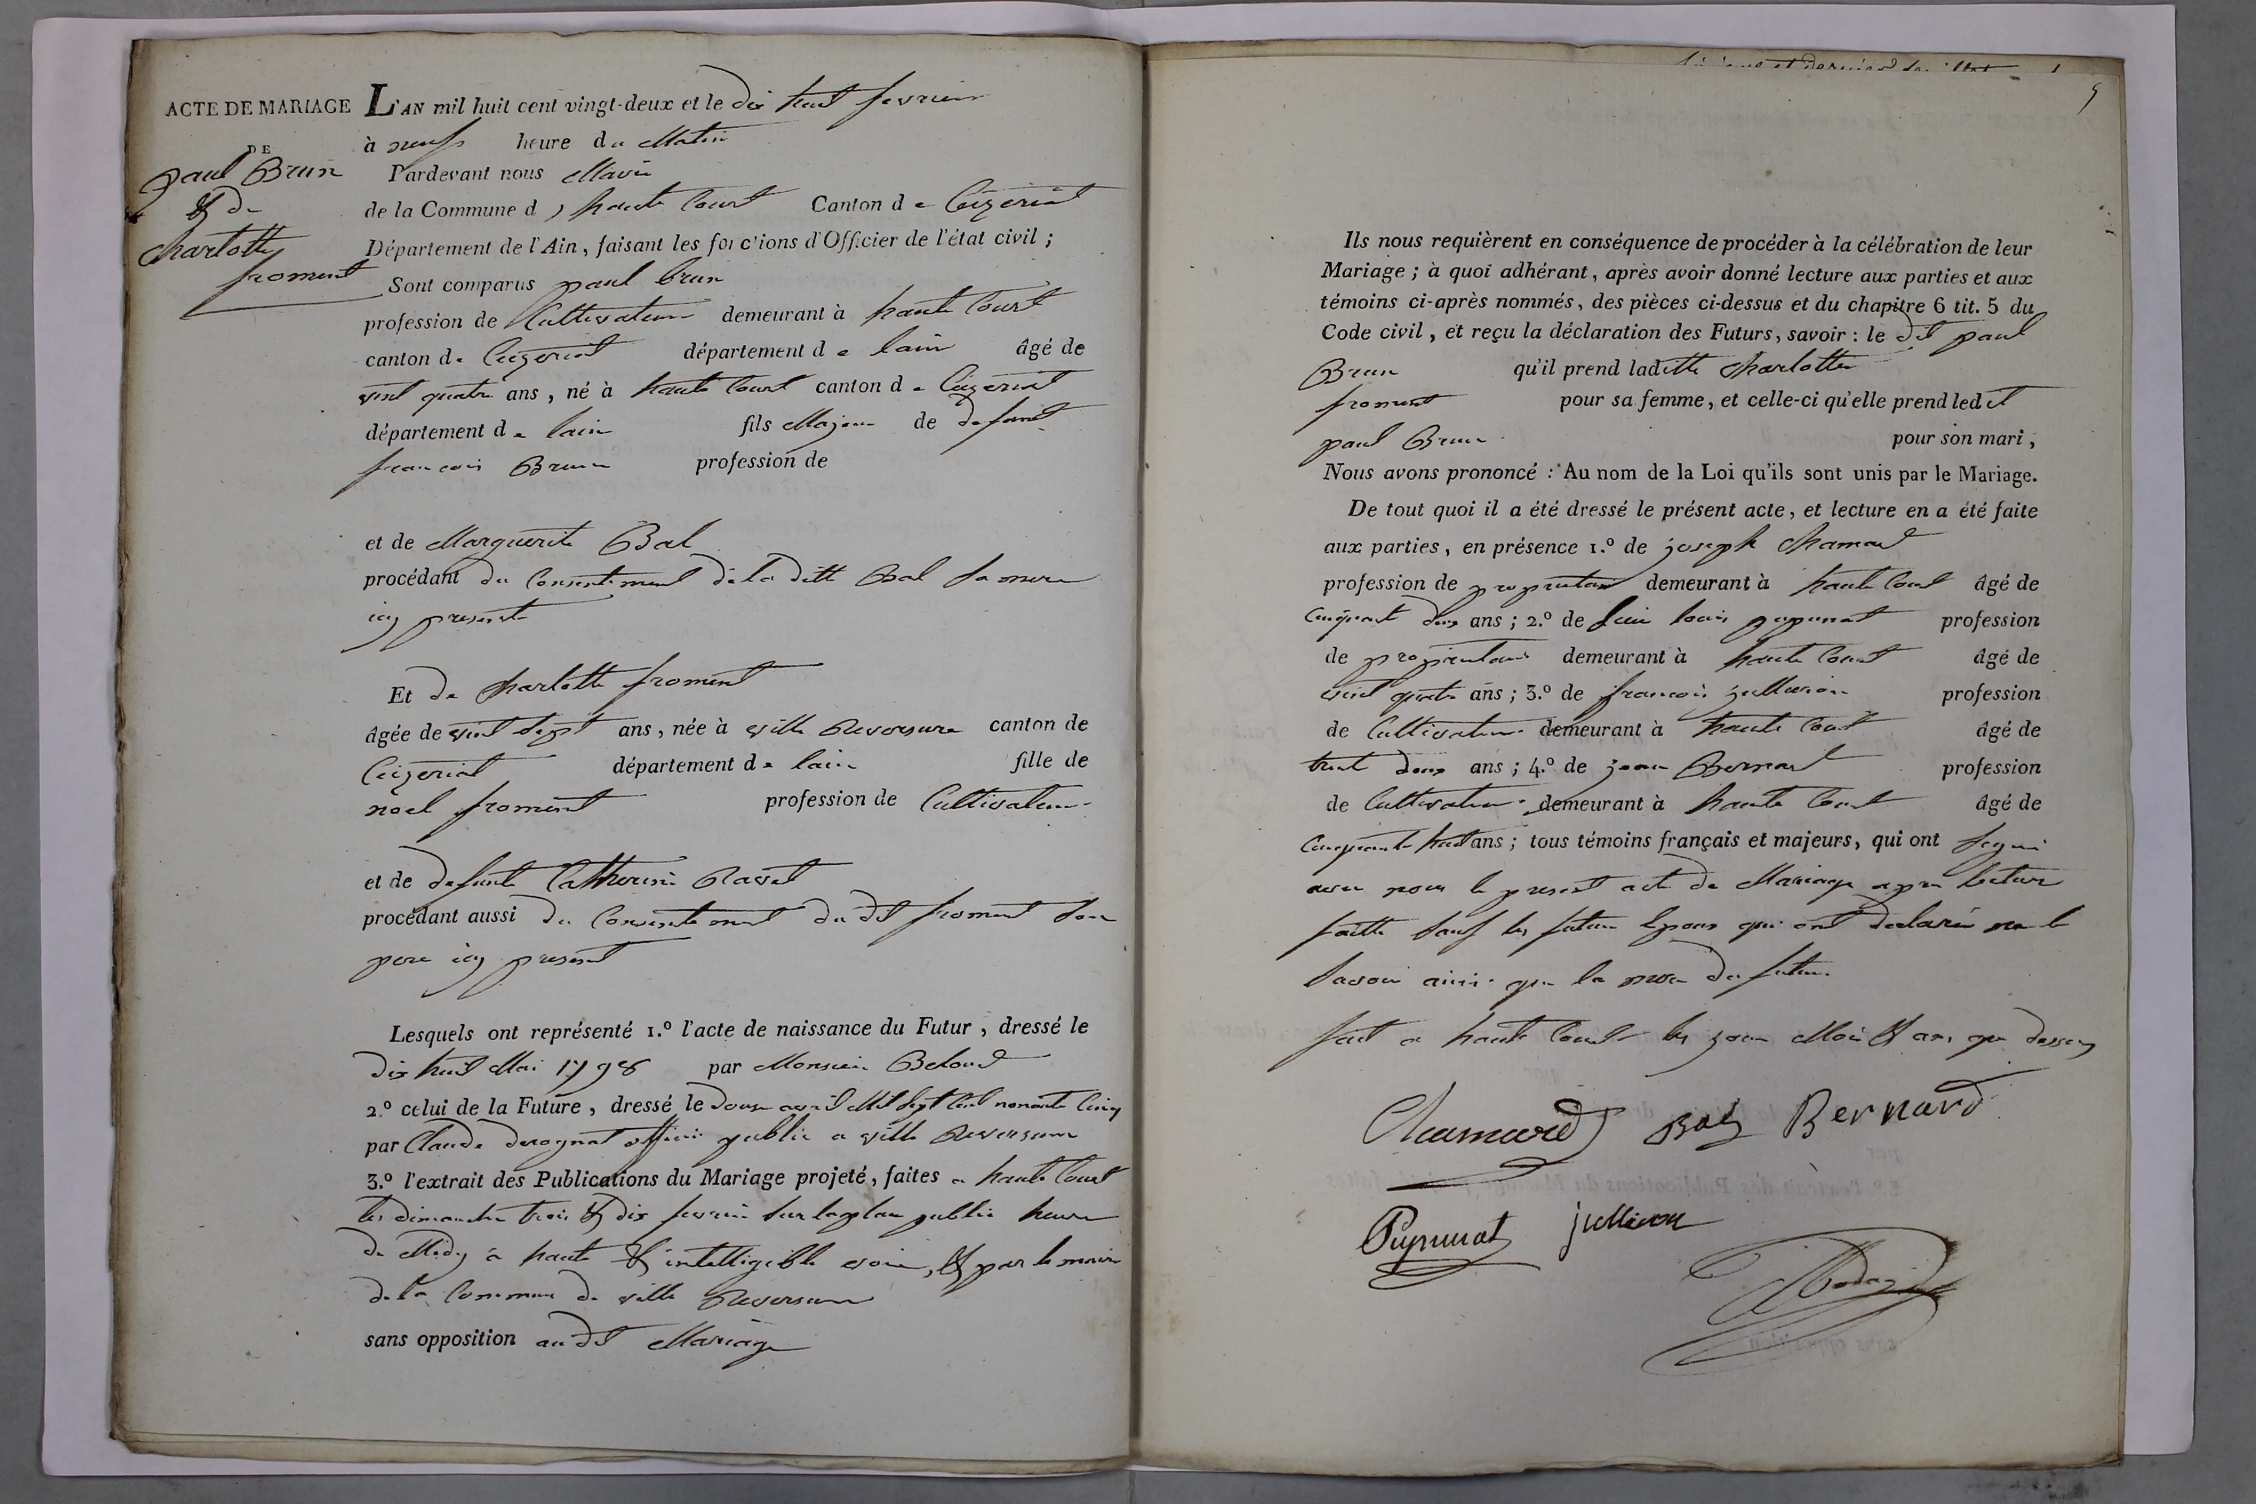 ACTE DE MARIAGE
DE
paul Brun
& de
Charlotte
froment
L'AN mil huit cent vingt-deux et le dix huit fevrier
à neufs heure du Matin
Pardevant nous Maire
de la Commune d, haute Court Canton de Ceÿzeriat
Département de l'Ain, faisant les fonc'ions d'Officier de l'état civil ;
Sont comparus paul brun
profession de Cultivateur demeurant à haute Court
canton de Ceÿzeriat département de lain âgé de
vint quatre ans, né à haute Court canton de Ceÿzeriat
département de lain fils Majeur de defunt
francois Brun profession de
et de Marguerite Bal
procédant du Consentiment de la ditte Bal sa mere
icy presente
Et de Charlotte froment
âgée de vint sept ans, née à ville Reversure canton de
Ceÿzeriat département de lain fille de
noel froment profession de Cultivateur
et de defunte Catherine Ravet
procédant aussi du Consentement du dit froment son
pere icy present
Lesquels ont représenté 1.º l'acte de naissance du Futur, dressé le
dix huit Mai 1798 par Monsieur
2.º celui de la Future, dressé le douse avril Mil Sept Cent nonante Cinq
par Claude derognat officier public a ville Reversure
3.º l'extrait des Publications du Mariage projeté, faites a haute Court
les dimanche trois & dix fevrier sur la place public heure
de Midy a haute & intelligible voix, & par le maire
de la Commune de ville Reversure
sans opposition audit Mariage
5
Ils nous requièrent en conséquence de procéder à la célébration de leur
Mariage ; à quoi adhérant, après avoir donné lecture aux parties et aux
témoins ci-après nommés, des pièces ci-dessus et du chapitre 6 tit. 5 du
Code civil, et reçu la déclaration des Futurs, savoir : le dit paul
Brun qu'il prend laditte Charlotte
froment pour sa femme, et celle-ci qu'elle prend ledit
paul Brun pour son mari,
Nous avons prononcé : Au nom de la Loi qu'ils sont unis par le Mariage.
De tout quoi il a été dressé le présent acte, et lecture en a été faite
aux parties, en présence 1.º de joseph Chamard
profession de proprietaire demeurant à haute Court âgé de
Cinquant deux ans ; 2.º de louis puynnat profession
de proprietaire demeurant à haute Court âgé de
vint quatre ans ; 3.º de francois jullieron profession
de Cultivateur demeurant à haute Court âgé de
trent deux ans ; 4.º de jean Bernard profession
de Cultivateur demeurant à haute Court âgé de
Cinquante huit ans ; tous témoins français et majeurs, qui ont signé
avec nous le present acte de Mariage apres lecture
faitte sauf les future Epoux qui ont declaré ne le
savoir ainsi que la mere du futur.
fait a haute Court les jour Mois & an que dessus
Chamard Bal Bernard
Puynnat jullieron